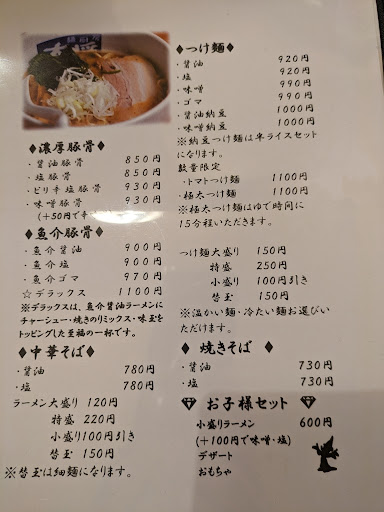 ◆濃厚豚骨◆
・醤油豚骨 850円
・塩豚骨 850円
・ピリ辛塩豚骨 930円
・味噌豚骨 930円
◆魚介豚骨◆
・魚介醤油 900円
・魚介塩 900円
・魚介ゴマ 970円
☆デラックス 1100円
※デラックスは、魚介醤油ラーメンに
チャーシュー・焼きのりミックス・味玉を
トッピングした至福の一杯です。
◆中華そば◆
・醤油 780円
・塩 780円
ラーメン大盛り 120円
特盛 220円
小盛り100円引き
替玉 150円
※替玉は細麺になります。
◆つけ麺◆
・醤油 920円
・塩 920円
・味噌 990円
・ゴマ 990円
・醤油納豆 1000円
・味噌納豆 1000円
※納豆つけ麺は半ライスセット
になります。
数量限定
・トマトつけ麺 1100円
・極太つけ麺 1100円
※極太つけ麺はゆで時間に
15分程いただきます。
つけ麺大盛り 150円
特盛 250円
小盛り 100円引き
替玉 150円
※温かい麺・冷たい麺お選びい
ただけます。
◆焼きそば◆
・醤油 730円
・塩 730円
お子様セット
小盛りラーメン 600円
(+100円で味噌・塩)
デザート
おもちゃ